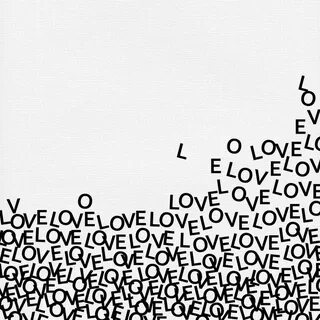 L
O
V
E
L O LOVE LO
E LOVE LOV
L LOVE LOVE
V O LOVE
LOVE LOVE LOVE LOVE LOVE LOVE LO
LOVE LOVE LOVE LOVE LOVE LOVE LOVE
LOVE LOVE LOVE LOVE LOVE LOVE LOVE
LOVE LOVE LOVE LOVE LOVE LOVE LOVE
LOVE LOVE LOVE LOVE LOVE LOVE LOVE
LOVE LOVE LOVE LOVE LOVE LOVE LOVE